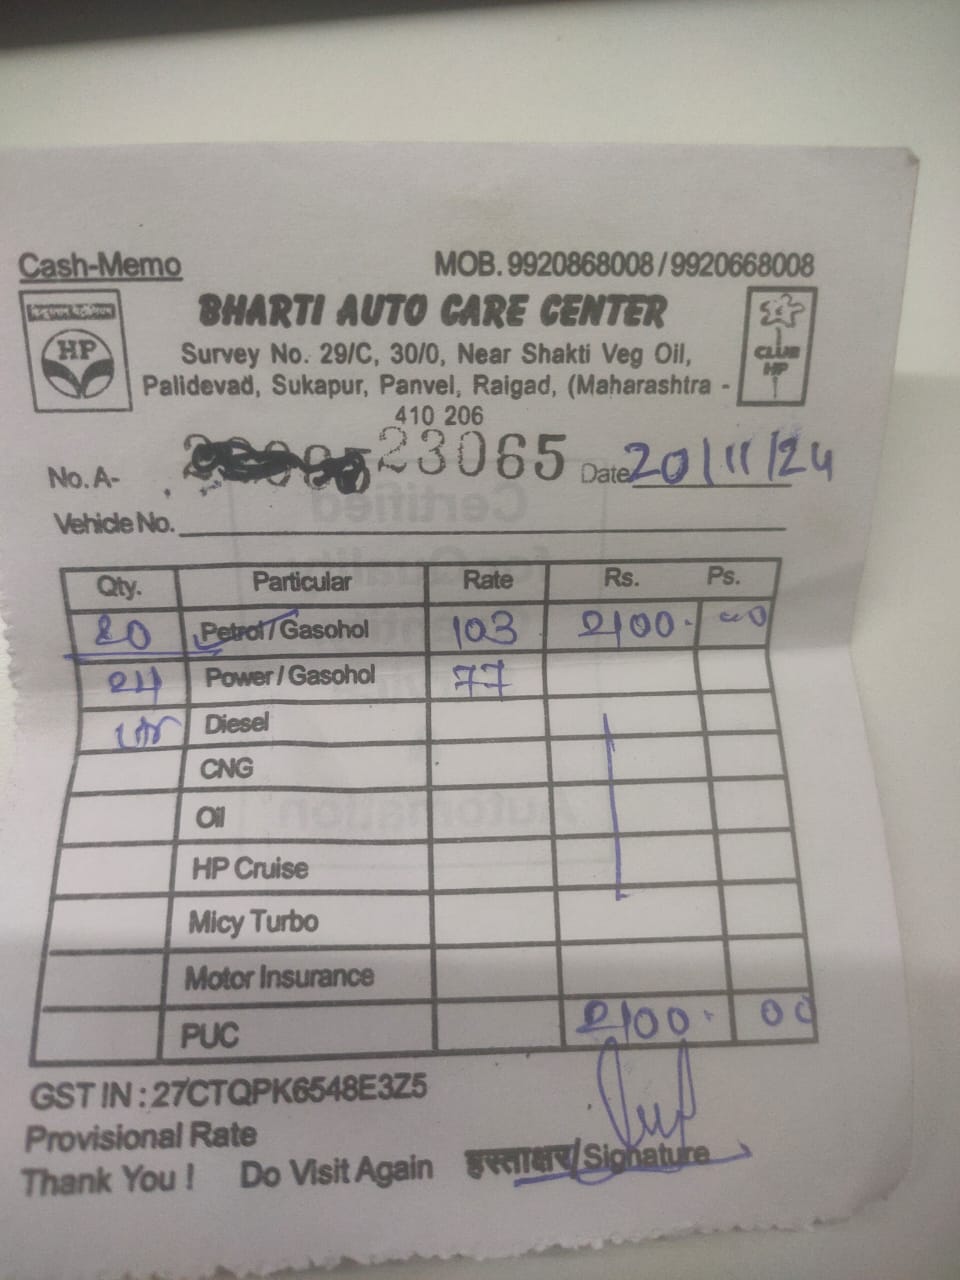 Cash-Memo MOB. 9920868008 / 9920668008
हिन्दुस्तान पेट्रोलियम
HP
BHARTI AUTO CARE CENTER
CLUB HP
Survey No. 29/C, 30/0, Near Shakti Veg Oil,
Palidevad, Sukapur, Panvel, Raigad, (Maharashtra -
410 206
No. A- 23065 Date 20/11/24
Vehicle No.
Qty. Particular Rate Rs. Ps.
20 Petrol / Gasohol 103 2100. 00
Power / Gasohol 77
Diesel
CNG
Oil
HP Cruise
Micy Turbo
Motor Insurance
PUC 2100. 00
GST IN : 27CTQPK6548E3Z5
Provisional Rate
Thank You ! Do Visit Again हस्ताक्षर/Signature